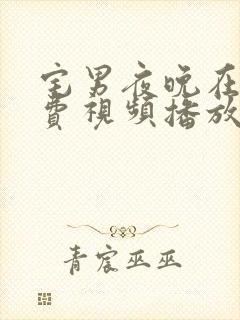 宅男夜晚在
費視頻播放
青宸巫巫